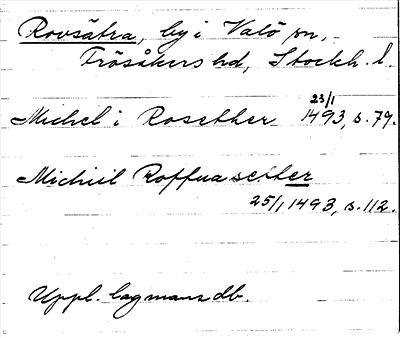 Rovsätra, by i Valö sn,
Frösåkers hd, Stockh. l.
Michel i Rosetker 23/1 1493, s. 79.
Michiil Roffuasetter
25/1 1493, s. 112.
Uppl. lagmans db.